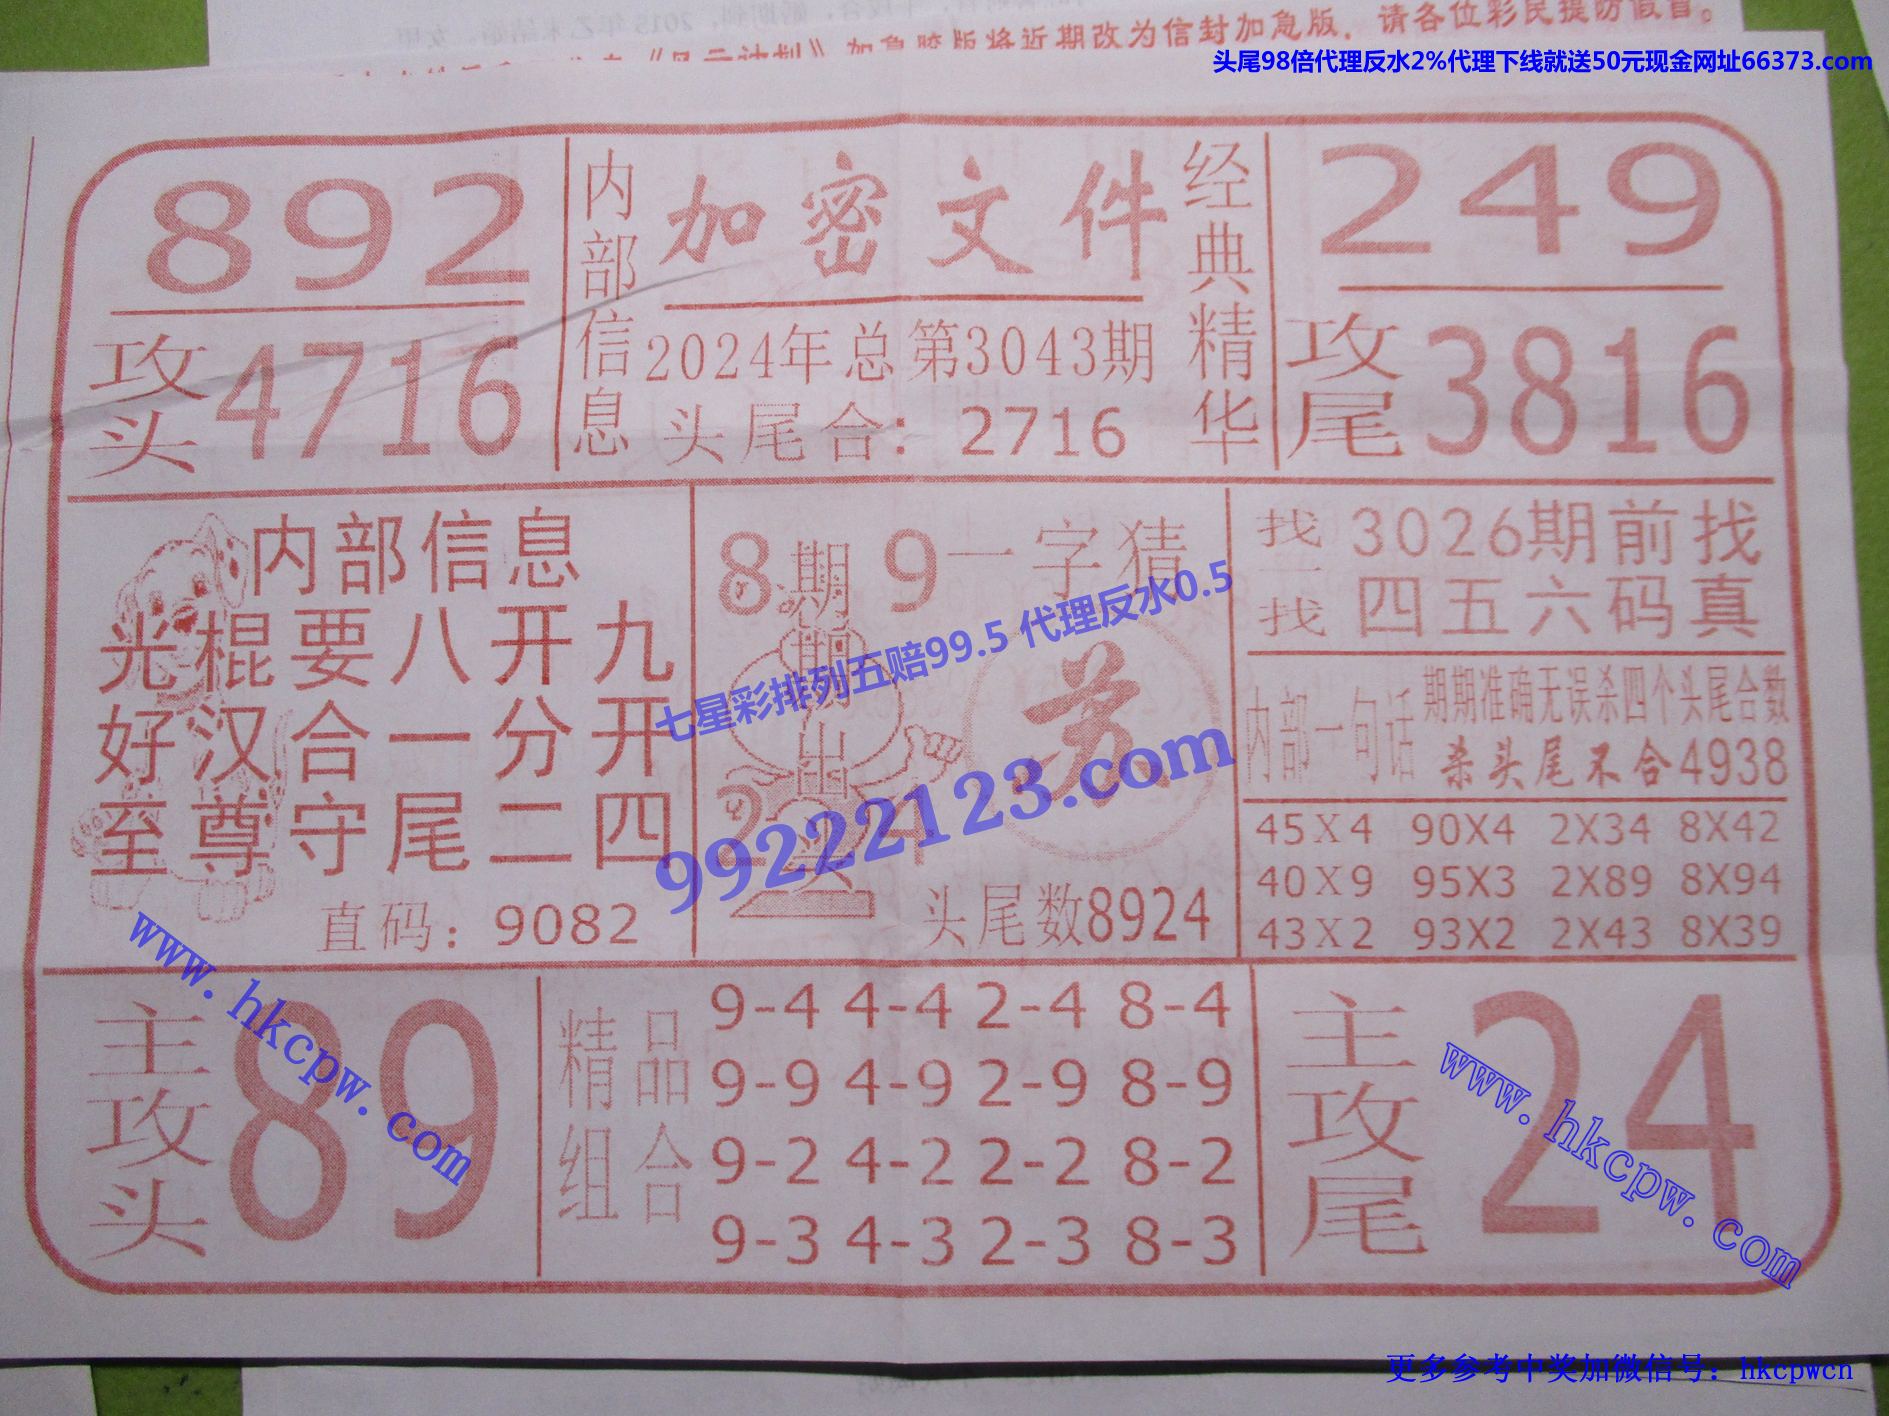 如急胶版将近期改为信封加急版，请各位彩民提防假冒。
头尾98倍代理反水2%代理下线就送50元现金网址66373.com
892
攻头 4716
内部信息
加密文件
2024年总第3043期
头尾合：2716
经典精华
249
攻尾 3816
内部信息
光棍要八开九
好汉合一分开
至尊守尾二四
直码：9082
8 9
期期出 2 4
一字猜
头尾数8924
找一找
3026期前找
四五六码真
内部一句话
期期准确无误杀四个头尾合数
杀头尾不合4938
45X4 90X4 2X34 8X42
40X9 95X3 2X89 8X94
43X2 93X2 2X43 8X39
主攻头 89
精品组合
9-4 4-4 2-4 8-4
9-9 4-9 2-9 8-9
9-2 4-2 2-2 8-2
9-3 4-3 2-3 8-3
主攻尾 24
七星彩排列五赔99.5 代理反水0.5
99222123.com
www.hkcpw.com
www.hkcpw.com
更多参考中奖加微信号：hkcpwcn